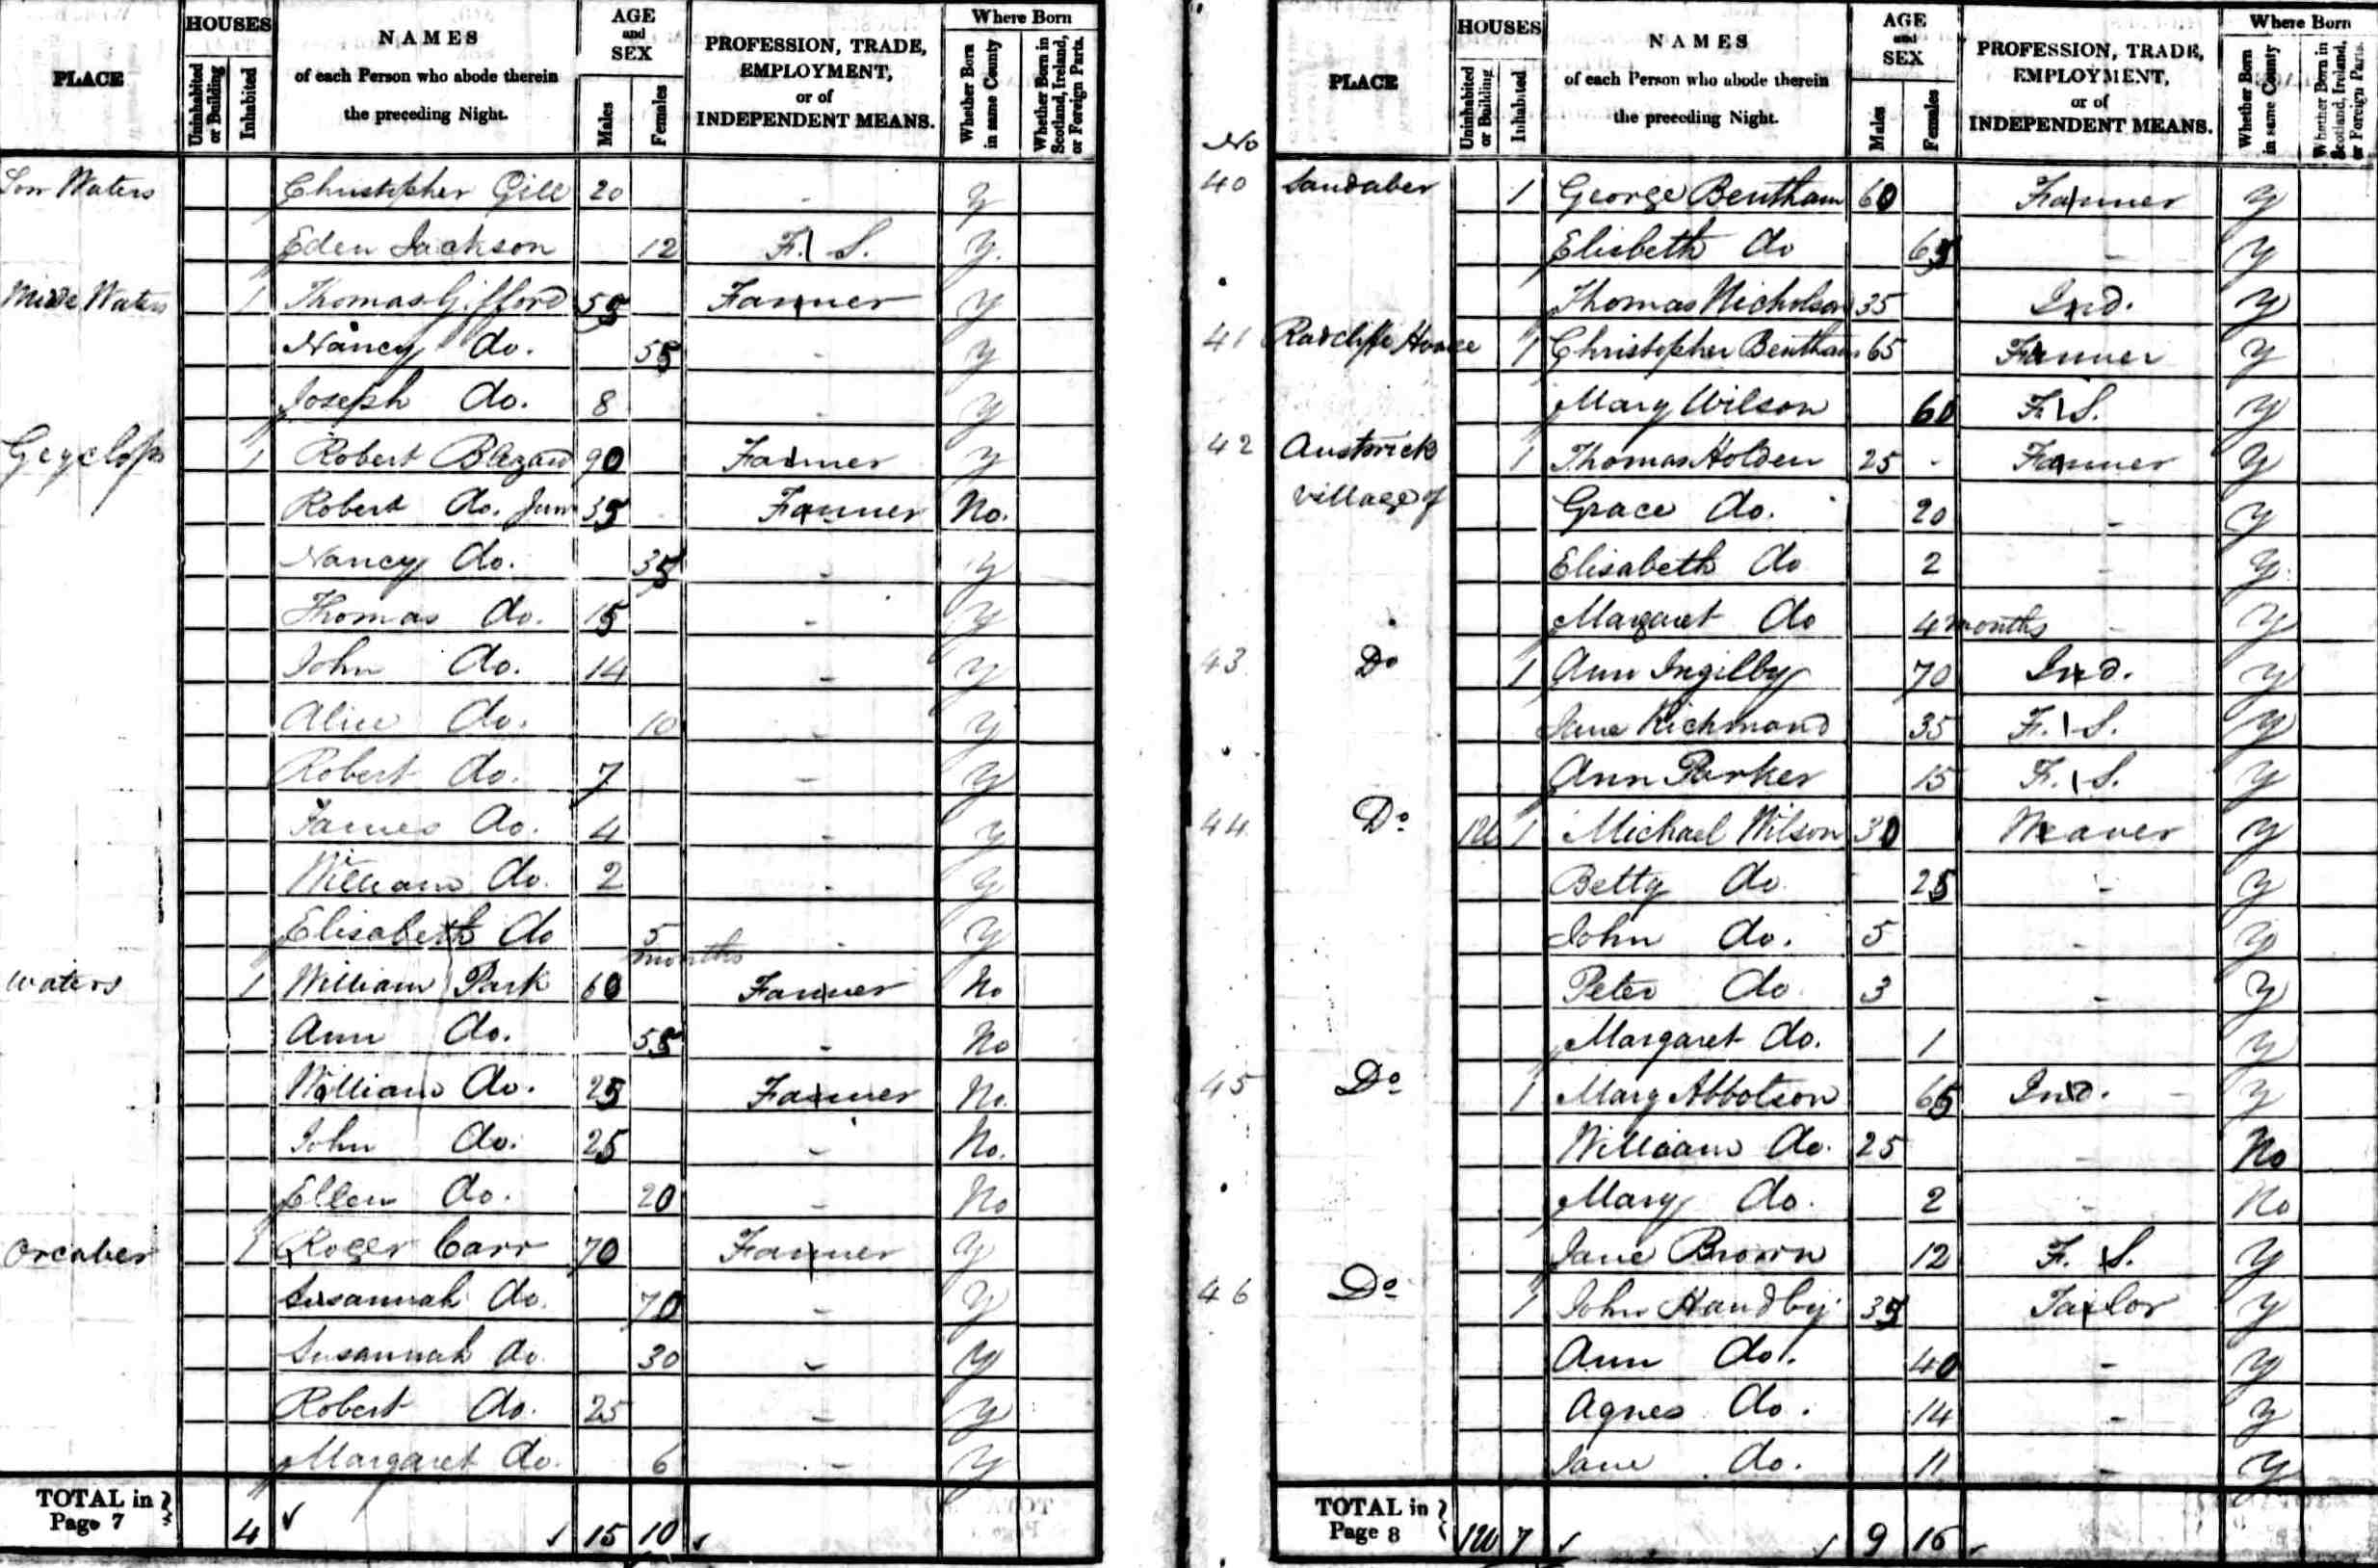 PLACE
HOUSES
Uninhabited or Building
Inhabited
NAMES
of each Person who abode therein
the preceding Night.
AGE
and
SEX
Males
Females
PROFESSION, TRADE,
EMPLOYMENT,
or of
INDEPENDENT MEANS.
Where Born
Whether Born in same County
Whether Born in Scotland, Ireland, or Foreign Parts.
Low Waters Christopher Gill 20 - y
Eden Jackson 12 F. S. y.
Midde Waters 1 Thomas Gifford 55 Farmer y
Nancy do. 55 - y
Joseph do. 8 - y
1 Robert Blezard 90 Farmer y
Robert do. Junr 35 Farmer No.
Nancy do. 35 - y
Thomas do. 15 - y
John do. 14 - y
Alice do. 10 - y
Robert do. 7 - y
James do. 4 - y
William do. 2 - y
Elisabeth do 5 months - y
Waters 1 William Park 60 Farmer No
Ann do. 55 - No
William do. 25 Farmer No.
John do. 25 - No.
Ellen do. 20 - No
Orcaber 1 Roger Carr 70 Farmer y
Susannah do. 70 - y
Susannah do. 30 - y
Robert do. 25 - y
Margaret do. 6 - y
TOTAL in Page 7 4 15 10
PLACE
HOUSES
Uninhabited or Building
Inhabited
NAMES
of each Person who abode therein
the preceding Night.
AGE
and
SEX
Males
Females
PROFESSION, TRADE,
EMPLOYMENT,
or of
INDEPENDENT MEANS.
Where Born
Whether Born in same County
Whether Born in Scotland, Ireland, or Foreign Parts.
No
40 Sandaber 1 George Bentham 60 Farmer y
Elisbeth do 65 - y
Thomas Nicholson 35 Ind. y
41 Radcliffe House 1 Christopher Bentham 65 Farmer y
Mary Wilson 60 F. S. y
42 Austwick 1 Thomas Holden 25 - Farmer y
Village of Grace do. 20 - y
Elisabeth do 2 - y
Margaret do 4 months - y
43 Do 1 Ann Ingilby 70 Ind. y
Jane Richmond 35 F. S. y
Ann Parker 15 F. S. y
44 Do 1U 1 Michael Wilson 30 Weaver y
Betty do. 25 - y
John do. 5 - y
Peter do. 3 - y
Margaret do. 1 y
45 Do 1 Mary Abbotson 65 Ind. y
William do. 25 - No
Mary do. 2 - No
Jane Brown 12 F. S. y
46 Do 1 John Handby 35 Tailor y
Ann do. 40 - y
Agnes do. 14 - y
Jane do. 11 - y
TOTAL in Page 8 1U 7 9 16